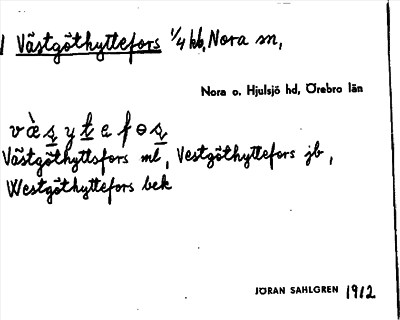 1 Västgöthyttefors 1/4 hb, Nora sn,
Nora o. Hjulsjö hd, Örebro län
væ̀s̱ytefɵs̱
Västgöthyttsfors ml, Vestgöthyttefors jb,
Westgöthyttefors bek
JÖRAN SAHLGREN 1912